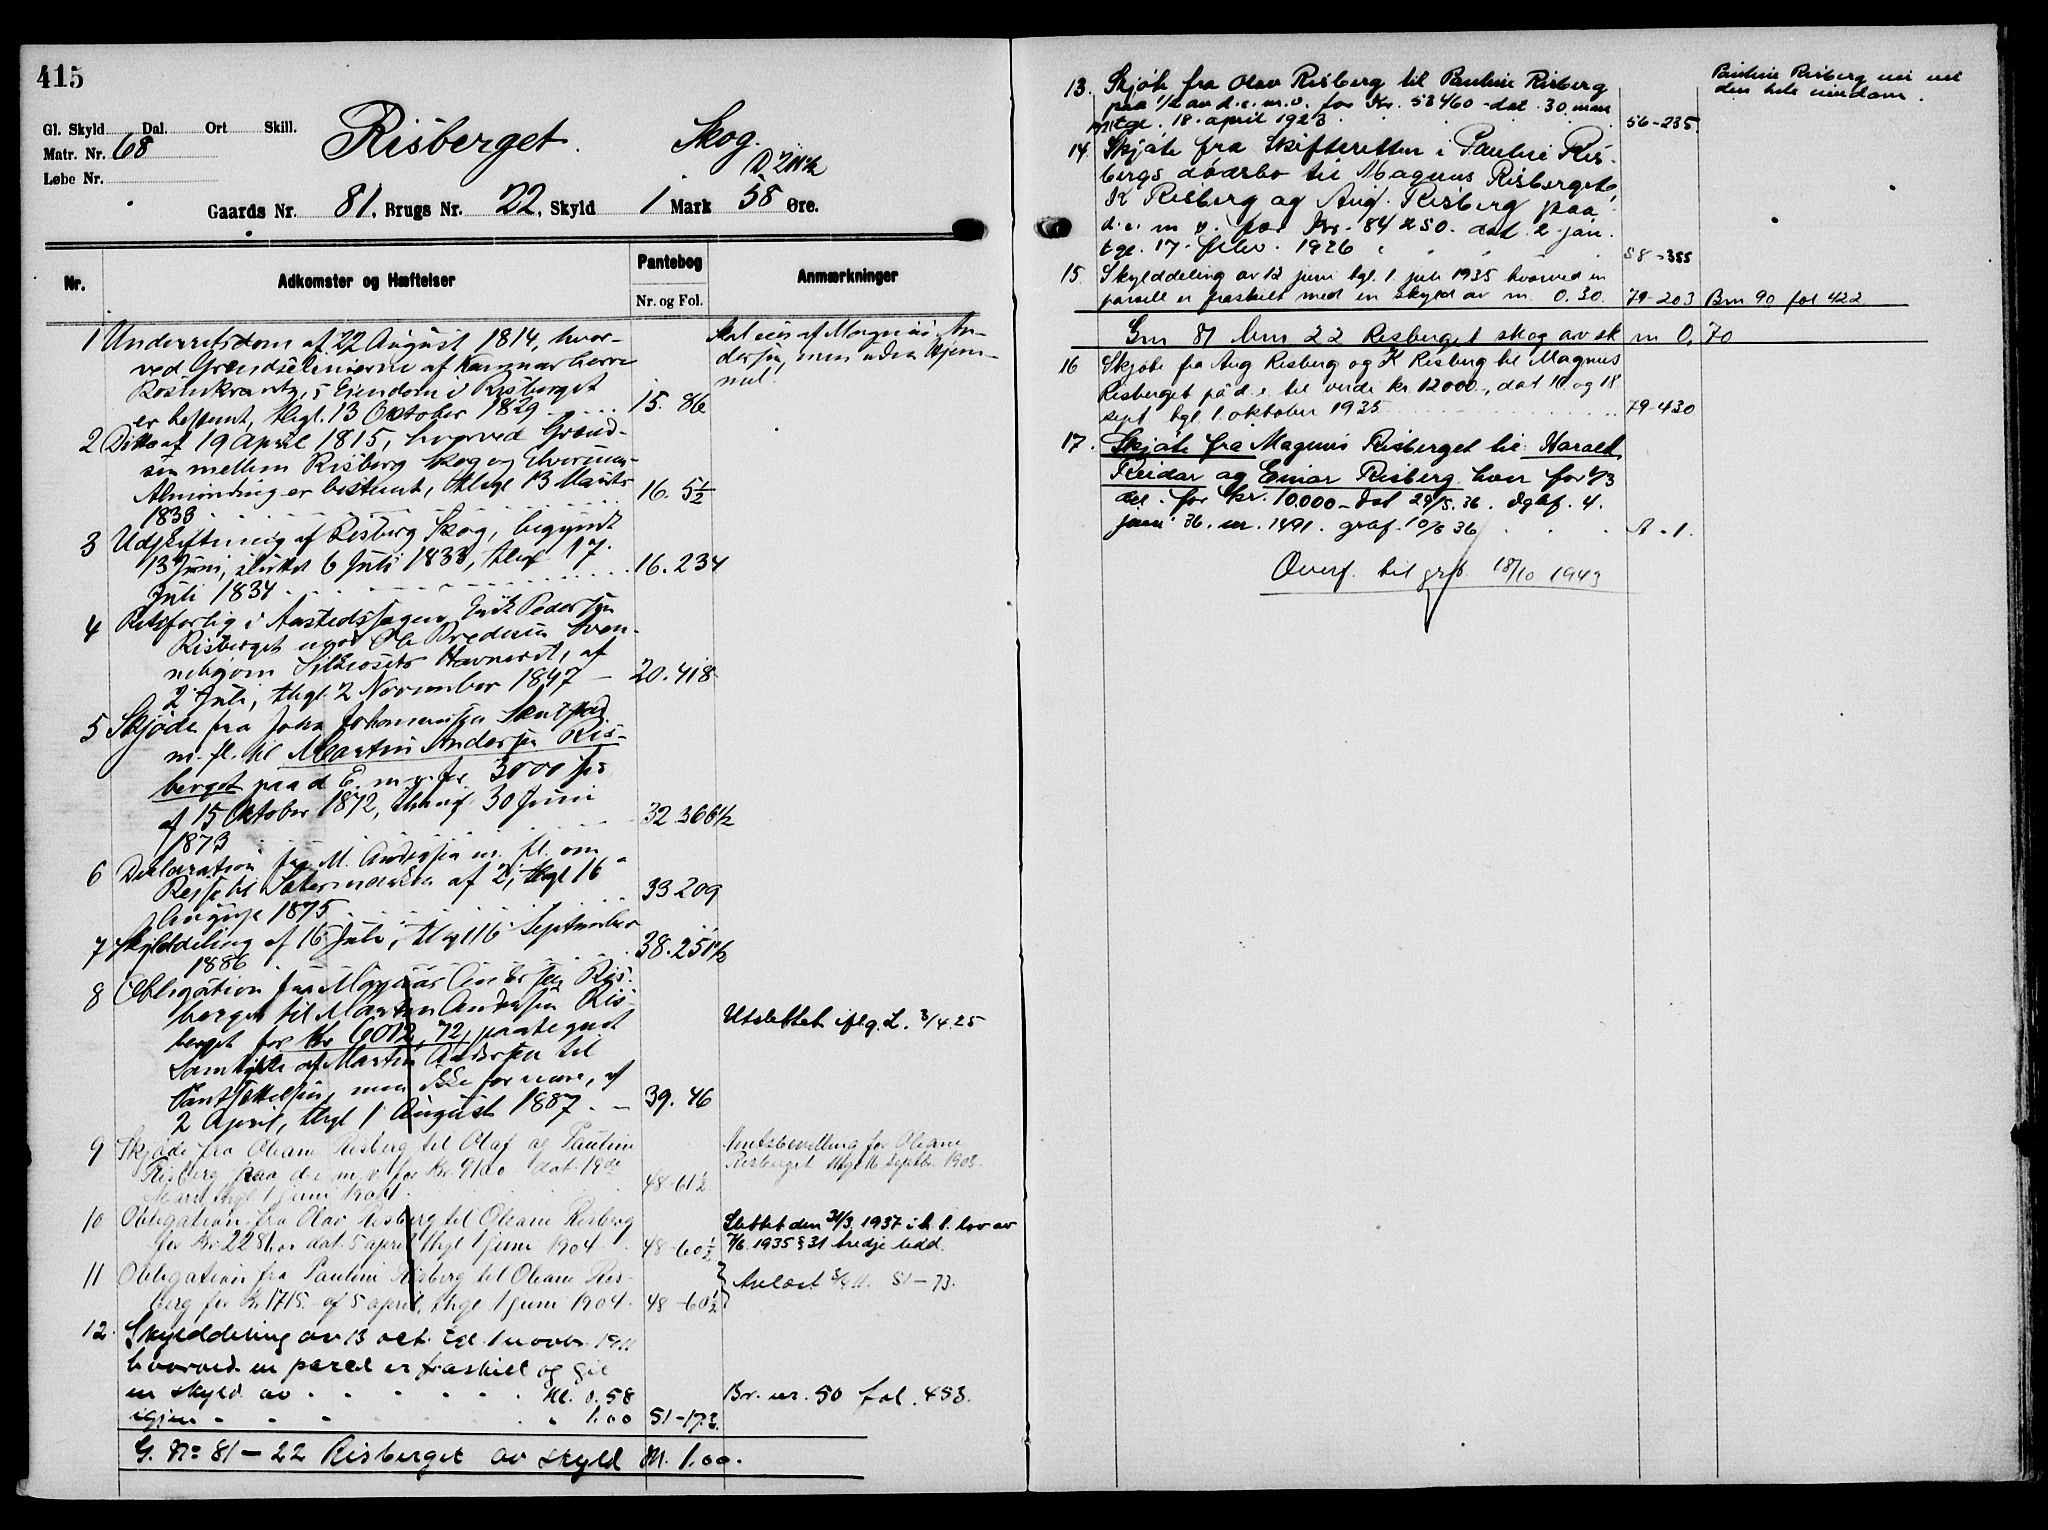 415
Gl. Skyld Dal. Ort Skill.
Matr. Nr. 68
Løbe Nr.
Risberget. Skog.
Gaards Nr. 81. Brugs Nr. 22. Skyld 1 Mark 58 Øre.
Nr. Adkomster og Hæftelser Pantebog Nr. og Fol. Anmærkninger
1 Underretsdom af 22 August 1814, hvor-
ved Grændselinierne af Kammerherre
Rosenkrantz's Eiendom i Risberget
er bestemt, thgl. 13 Oktober 1829 15. 86
Skal eies af Magnus An-
dersen, men uden Hjem-
mel!
2 Ditto af 19 April 1815, hvorved Grænd-
sen mellem Risberg Skog og Elverums
Almending er bestemt, thgl 13 Marts
1833 16. 5½
3 Udskiftning af Risberg Skog, begyndt
13 Juni, sluttet 6 Juli 1833, thgl 17.
Juli 1834 16. 234
4 Retsforlig i Aastedssagen Erik Pedersen
Risberget mod Ole Pedersen Sven-
neby om Havneret, af
2 Juli, thgl. 2 November 1847 20. 418
5 Skjøde fra Johan Johannessen
m. fl. til Martin Andersen Ris-
berget paa d. E. m. v. for 3000 Spd
af 15 Oktober 1872, thgl 30 Juni
1873 32. 366½
6 Deklaration fra M. Andersen m. fl. om
af 2, thgl 16
August 1875 33 209
7 Skylddeling af 16 Juli, thgl 16 September
1886 38. 251½
8 Obligation fra Magnus Andersen Ris-
berget til Martin Andersen Ris-
berget for Kr 6012,72, paategnet
Samtykke af Martin Andersen til
Pantsættelsen, men ikke for mere, af
2 April, thgl 1 August 1887 39. 46
Utslettet iflg. L. 3/4.25
9 Skjøde fra Oleane Risberg til Olaf og Pauline
Risberg paa d. e. m. v. for Kr. 9100 dat. 19de
Mars thgl 1 juni 1904 48-61½
Amtsbevilling for Oleane
Risberget thgl 16 septbr. 1903.
10 Obligation fra Olav Risberg til Oleane Risberg
for Kr. 2281.00 dat. 5 april thgl 1 juni 1904 48-60½
Slettet den 31/3 1937 i h. t. lov av
7/6 1935 § 31 tredje ledd.
11 Obligation fra Pauline Risberg til Oleane Ris-
berg for Kr. 1715.- af 5 april, thgl 1 juni 1904. 48-60½
Avlæst 51-73.
12. Skylddeling av 13 oct. tgl. 1 novbr. 1911
hvorved en parcel er fraskilt og git
en skyld av M. 0.58
igjen " 1.00 51-173.
Br. nr. 50 fol. 453.
G. No 81-22 Risberget av skyld M. 1.00.
13. Skjøte fra Olav Risberg til Pauline Risberg
paa 1/2 av d. e. m. v. for Kr. 53460 - dat. 30 mars
tgl. 18. april 1923 56-235.
Pauline Risberg eier nu
den hele eiendom.
14 Skjøte fra Skifteretten i Pauline Ris-
bergs dødsbo til Magnus Risberget
K Risberg og Aug. Risberg paa
d. e. m v. for Kr. 84250. dat. 2 jan.
tgl. 17. febr. 1926 58-355
15 Skylddeling av 12 juni tgl. 1 juli 1935 hvorved en
parsell er fraskilt med en skyld av m 0.30. 79-203 Bnr 90 fol 422
Gnr 81 bnr 22 Risberget skog av sk m 0,70
16 Skjøte fra Aug Risberg og K Risberg til Magnus
Risberget på d. e til verdi kr. 12000., dat 10 og 18
sept tgl 1 oktober 1935 79-430
17. Skjøte fra Magnus Risberget til Harald
Reidar og Einar Risberg hver for 1/3
del. for kr. 10.000 - dat 29/5. 36. dgbf. 4.
juni 36. nr. 1491. grbf. 10/6 36 A-1.
Overf. til grb. 18/10 1943